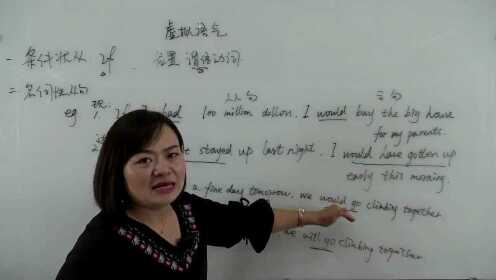 虚拟语气
一 条件状从 if 位置 谓语动词
二 名词性从句
从句 主句
eg. 现: 1. If I had 100 million dollars, I would buy the big house
for my parents.
stayed up last night, I would have gotten up
early this morning.
a fine day tomorrow, we would go climbing together
we will go climbing together